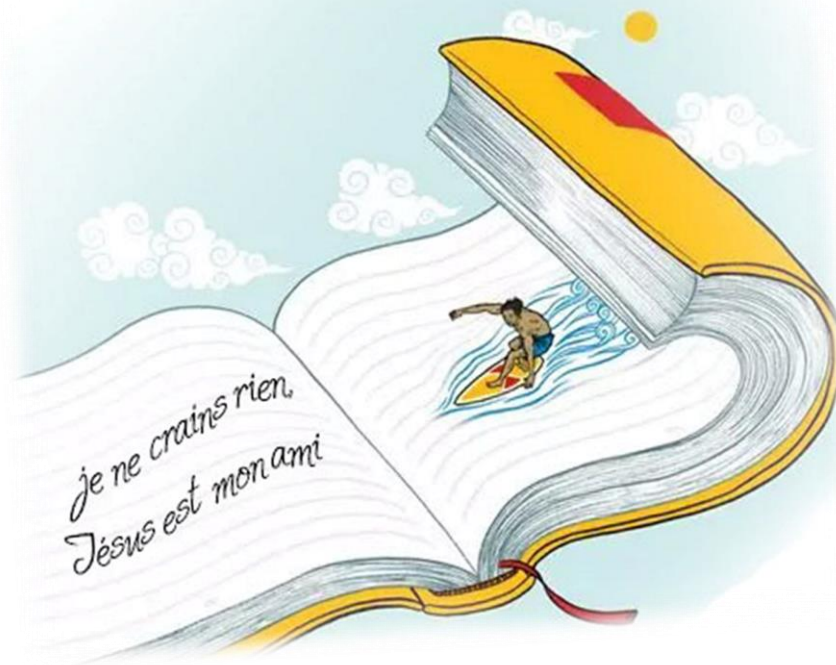 je ne crains rien,
Jésus est mon ami